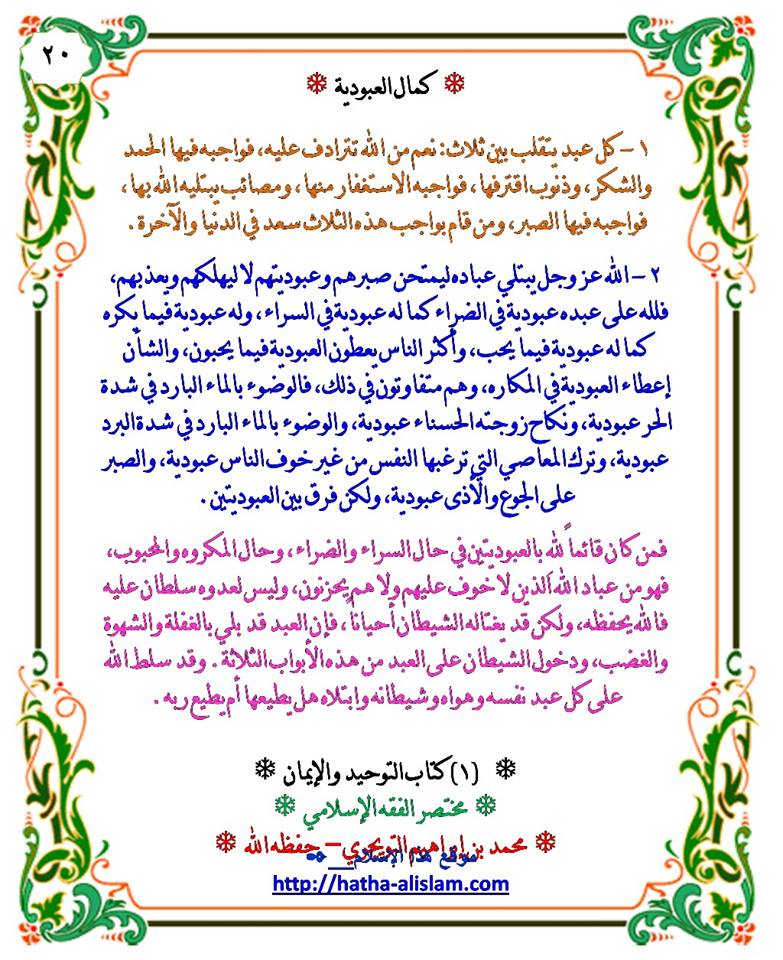 ٢٠
❄ كمال العبودية ❄
١ – كل عبد يتقلب بين ثلاث: نعم من الله تترادف عليه، فواجبه فيها الحمد
والشكر، وذنوب اقترفها، فواجبه الاستغفار منها، ومصائب يبتليه الله بها،
فواجبه فيها الصبر، ومن قام بواجب هذه الثلاث سعد في الدنيا والآخرة.
٢ – الله عز وجل يبتلي عباده ليمتحن صبرهم وعبوديتهم لا ليهلكهم ويعذبهم،
فلله على عبده عبودية في الضراء كما له عبودية في السراء، وله عبودية فيما يكره
كما له عبودية فيما يحب، وأكثر الناس يعطون العبودية فيما يحبون، والشأن
إعطاء العبودية في المكاره، وهم متفاوتون في ذلك، فالوضوء بالماء البارد في شدة
الحر عبودية، ونكاح زوجته الحسناء عبودية، والوضوء بالماء البارد في شدة البرد
عبودية، وترك المعاصي التي ترغبها النفس من غير خوف الناس عبودية، والصبر
على الجوع والأذى عبودية، ولكن فرق بين العبوديتين.
فمن كان قائماً لله بالعبوديتين في حال السراء والضراء، وحال المكروه والمحبوب،
فهو من عباد الله الذين لا خوف عليهم ولا هم يحزنون، وليس لعدوه سلطان عليه
فالله يحفظه، ولكن قد يغتاله الشيطان أحياناً، فإن العبد قد بلي بالغفلة والشهوة
والغضب، ودخول الشيطان على العبد من هذه الأبواب الثلاثة. وقد سلط الله
على كل عبد نفسه وهواه وشيطانه وابتلاه هل يطيعها أم يطيع ربه.
❄ (١) كتاب التوحيد والإيمان ❄
❄ مختصر الفقه الإسلامي ❄
❄ محمد بن إبراهيم التويجري – حفظه الله ❄
موقع هذا الإسلام
http://hatha-alislam.com